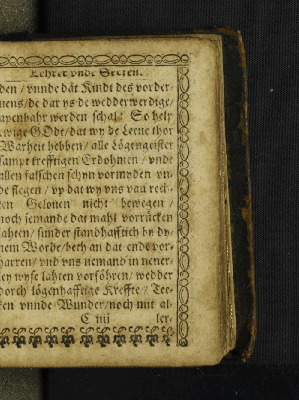 Lehrer vnde Secten.
den / vnnde dat Kindt des vorder-
uens / de dar ys de wedderwerdige /
apenbahr werden schal: So help
ewige GOdt / dat wy de Leeue thor
Warheit hebben / alle Lögengeister
sampt krefftigen Erdohmen / vnde
allen falschen schyn vormyden vn-
de flegen / vp dat wy vns van rech-
ten Gelouen nicht bewegen /
noch jemande dat mahl vorrücken
lahten / sünder standhafftich by dy-
nem Worde / beth an dat ende vor-
harren / vnd vns nemand in nener-
ley wyse lahten vorföhren / wedder
dorch lögenhafftige Kreffte / Tee-
ken vnnde Wunder / noch mit al-
C iiij ler-